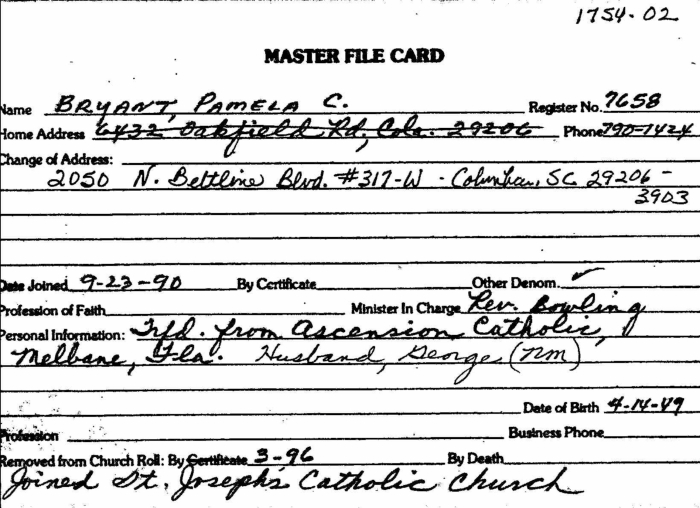 1754-02
MASTER FILE CARD
Name BRYANT, PAMELA C. Register No. 7658
Home Address 6432 Oakfield Rd, Cola. 29206 Phone 790-1424
Change of Address:
2050 N. Beltline Blvd. #317-W - Columbia, SC 29206-
3903
Date Joined 9-23-90 By Certificate Other Denom. ✓
Profession of Faith Minister In Charge Rev. Bowling
Personal Information: Trfd. from Ascension Catholic,
Melbane, Fla. Husband, George (nm)
Date of Birth 4-14-49
Profession Business Phone
Removed from Church Roll: By Certificate 3-96 By Death
Joined St. Josephs Catholic Church